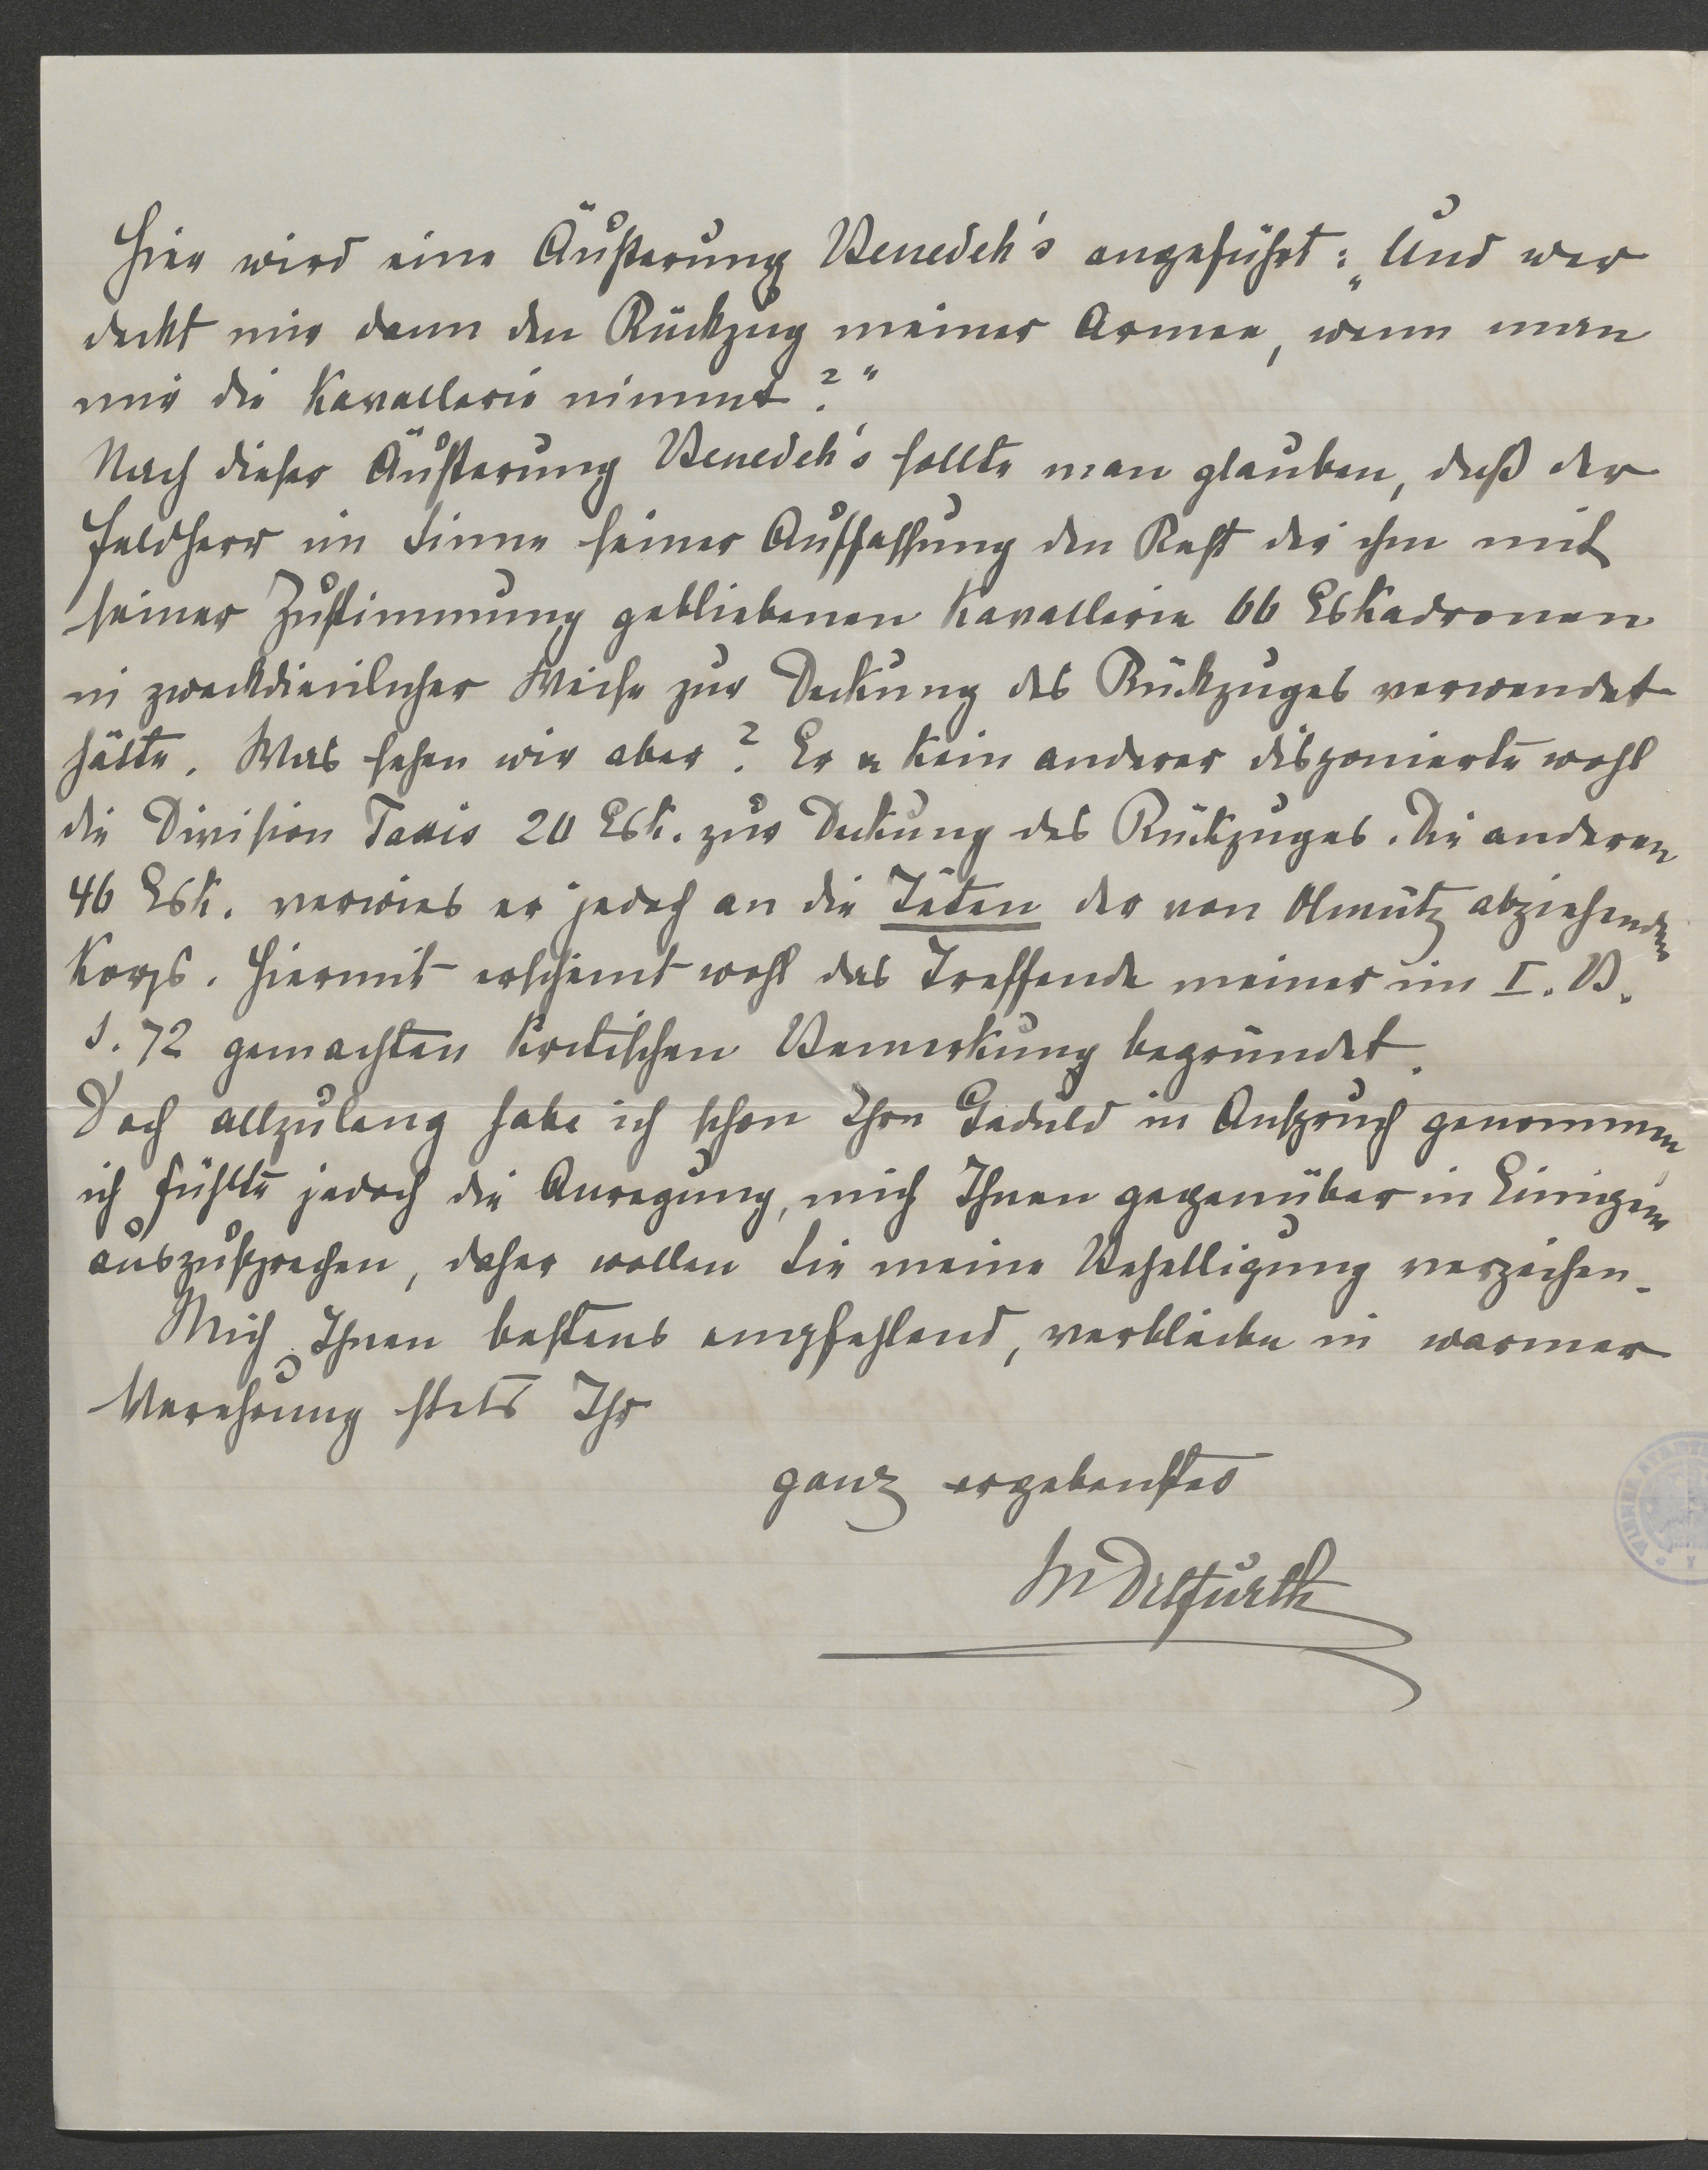 Hier wird eine Äußerung Benedek's angeführt: „Und wer
deckt mir dann den Rückzug meiner Armee, wenn man
mir die Kavallerie nimmt?“
Nach dieser Äußerung Benedek's sollte man glauben, daß der
Feldherr im Sinne seiner Auffassung den Rest der ihm mit
seiner Zustimmung gebliebenen Kavallerie 66 Eskadronen
in zweckdienlicher Weise zur Deckung des Rückzuges verwendet
hätte. Was sehen wir aber? Er u kein anderer disponierte wohl
die Division Taxis 20 Esk. zur Deckung des Rückzuges. Die anderen
46 Esk. verwies er jedoch an die Têten der von Olmütz abziehenden
Korps. Hiermit erscheint wohl das Treffende meiner im I. B.
S. 72 gemachten kritischen Bemerkung begründet.
Doch allzulang habe ich schon Ihre Geduld in Anspruch genommen
ich fühlte jedoch die Anregung, mich Ihnen gegenüber in Einigem
auszusprechen, daher wollen Sie meine Behelligung verzeihen.
Mich Ihnen bestens empfehlend, verbleibe in warmer
Verehrung stets Ihr
ganz ergebenster